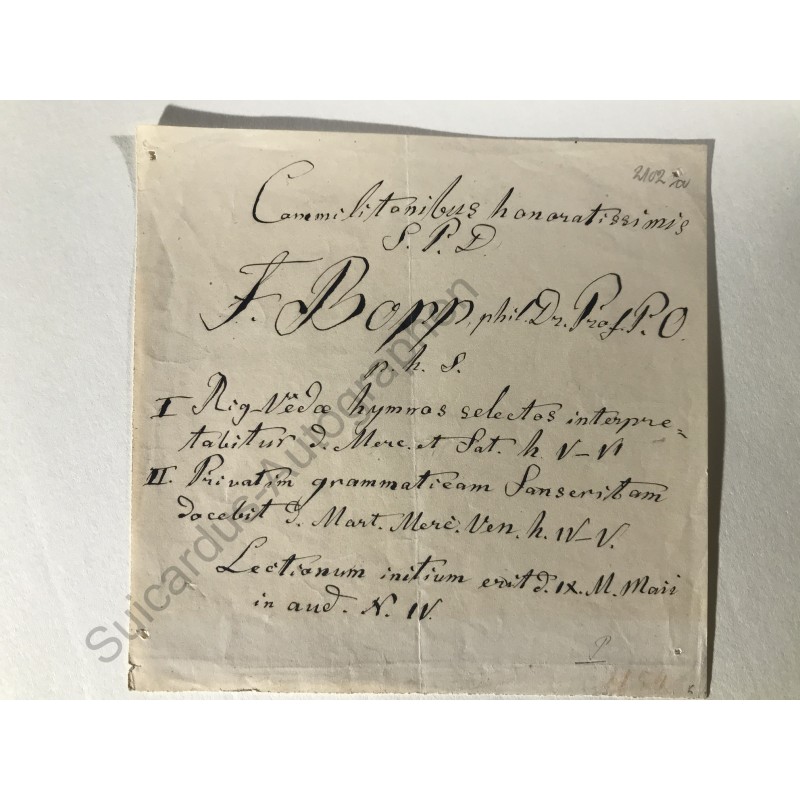 2102
Commilitonibus honoratissimis
S. P. D.
F. Bopp, phil. Dr. Prof. P. O.
p. h. s.
I Rig-Vedæ hymnos selectos interpre=
tabitur d. Merc. et Sat. h V-VI
II. Privatim grammaticam Sanscritam
docebit d. Mart. Merc. Ven. h. IV-V.
Lectionum initium erit d. IX. M. Maii
in aud. N. IV.
Suicardus-Autographen